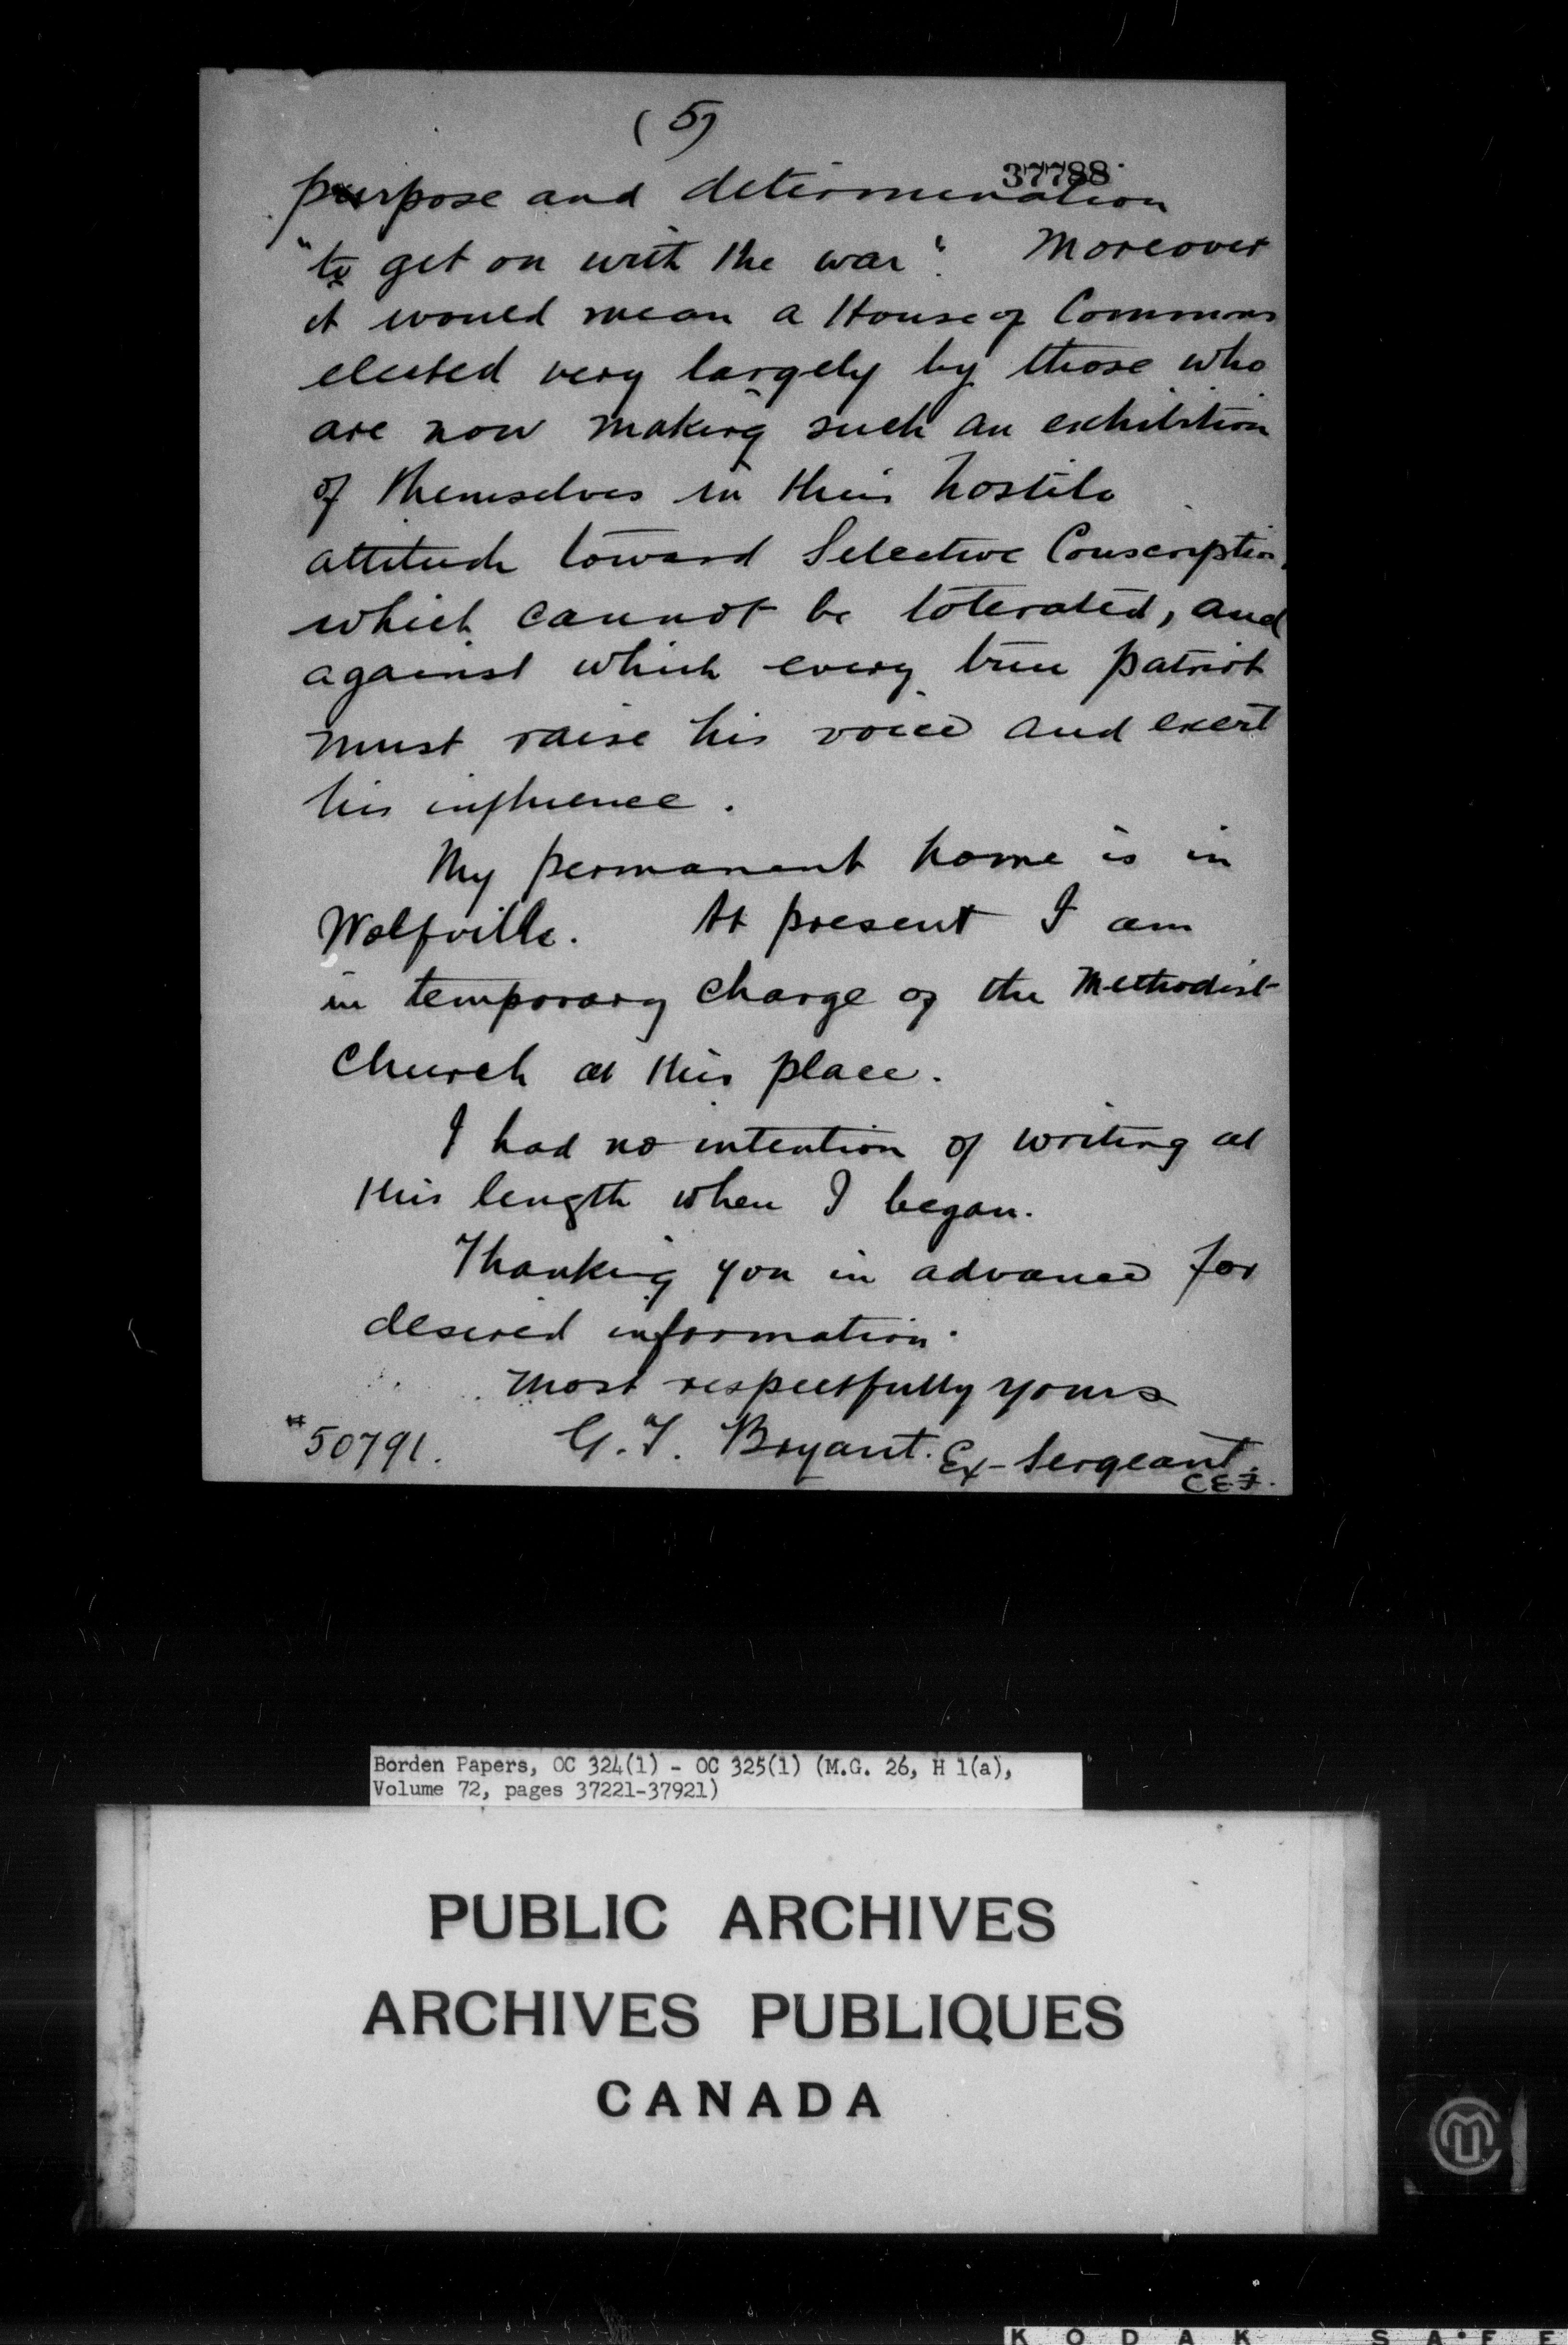 (5)
37788
purpose and determination
"to get on with the war". Moreover
it would mean a House of Commons
elected very largely by those who
are now making such an exhibition
of themselves in their hostile
attitude toward Selective Conscription,
which cannot be tolerated, and
against which every true patriot
must raise his voice and exert
his influence.
My permanent home is in
Wolfville. At present I am
in temporary charge of the Methodist
Church at this place.
I had no intention of writing at
this length when I began.
Thanking you in advance for
desired information.
Most respectfully yours
#50791. G. T. Bryant. Ex-Sergeant.
C E F.
Borden Papers, OC 324(1) - OC 325(1) (M.G. 26, H 1(a),
Volume 72, pages 37221-37921)
PUBLIC ARCHIVES
ARCHIVES PUBLIQUES
CANADA
KODAK SAFE